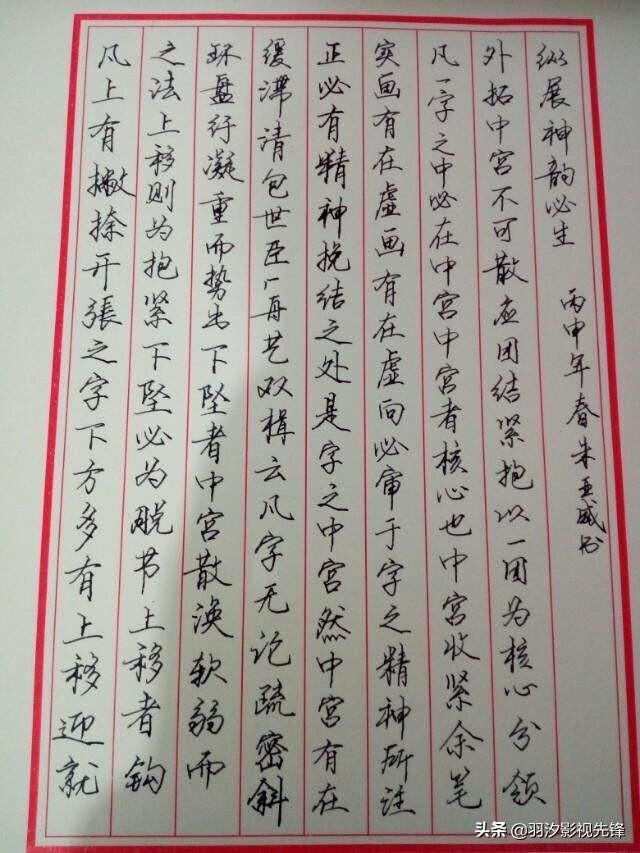 凡上有撇捺开張之字下方多有上移迎就
之法上移则为抱紧下坠必为脱节上移者钩
环盘纡凝重而势出下坠者中宫散涣软弱而
缓滞清包世臣厂再艺双楫云凡字无论疏密斜
正必有精神挽结之处是字之中宫然中宫有在
实画有在虚画有在虚向必审于字之精神所注
凡一字之中必在中宫中宫者核心也中宫收紧余笔
外拓中宫不可散应团结紧抱以一团为核心分领
纵展神韵必生
丙申年春朱亚威书
头条 @羽汐影视先锋